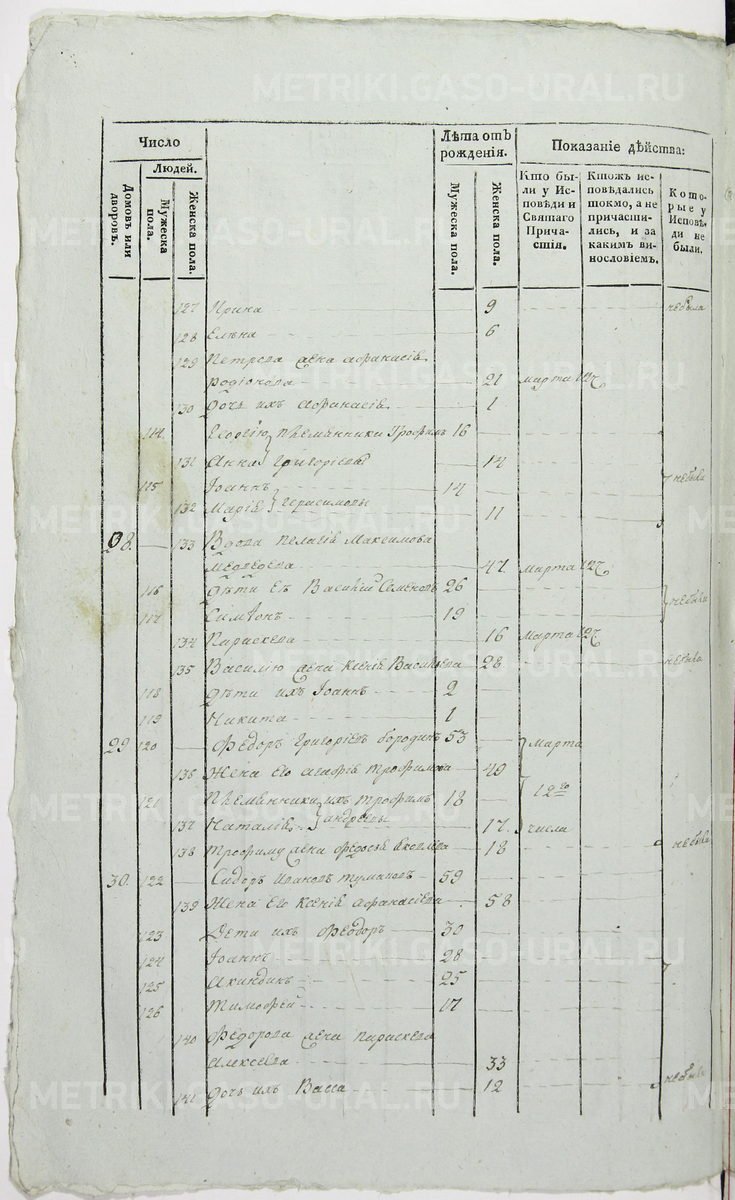 METRIKI.GASO-URAL.RU
Число
Людей.
Домовъ или дворовъ.
Мужеска пола.
Женска пола.
Лѣта отъ рожденія.
Мужеска пола.
Женска пола.
Показаніе дѣйства:
Кто были у Исповѣди и Святаго Причастія.
Ктожъ исповѣдались токмо, а не причастились, и за какимъ винословіемъ.
Которые у Исповѣди не были.
127 Ирина 9 небыла
128 Елѣна 6
129 Петрова жена Афанасія
Родіонова 21 марта 12
130 Дочь ихъ Афанасія 1
114 Племянники Трофимъ 16
131 Анна Григорьевы 14
115 Іоаннъ 14 небыли
132 Марія Герасимовы 11
28 133 Вдова Пелагія Максимова
47 марта 12
116 Дѣти ея Василій Семеновъ 26 небыли
117 Симеонъ 19
134 Параскева 16 марта 12
135 Василию жена Ксенія Васильева 28 небыла
118 Дѣти ихъ Іоаннъ 2
119 Никита 1
29 120 Феодоръ Григоріевъ Бородинъ 53 марта
136 Жена его Агафія Трофимова 49
121 Племянники ихъ Трофимъ 18 12го
137 Наталія андреевы 17 числа
138 Трофиму жена Федосья 18 небыла
30 122 Сидоръ Ивановъ Тумановъ 59
139 Жена его Ксенія Афанасіева 58
123 Дети ихъ Феодоръ 30
124 Іоаннъ 28
125 Акиндинъ 25
126 Тимофей 17
140 Федорова жена Параскева
Алексеева 33
141 Дочь ихъ Васса 12 небыли